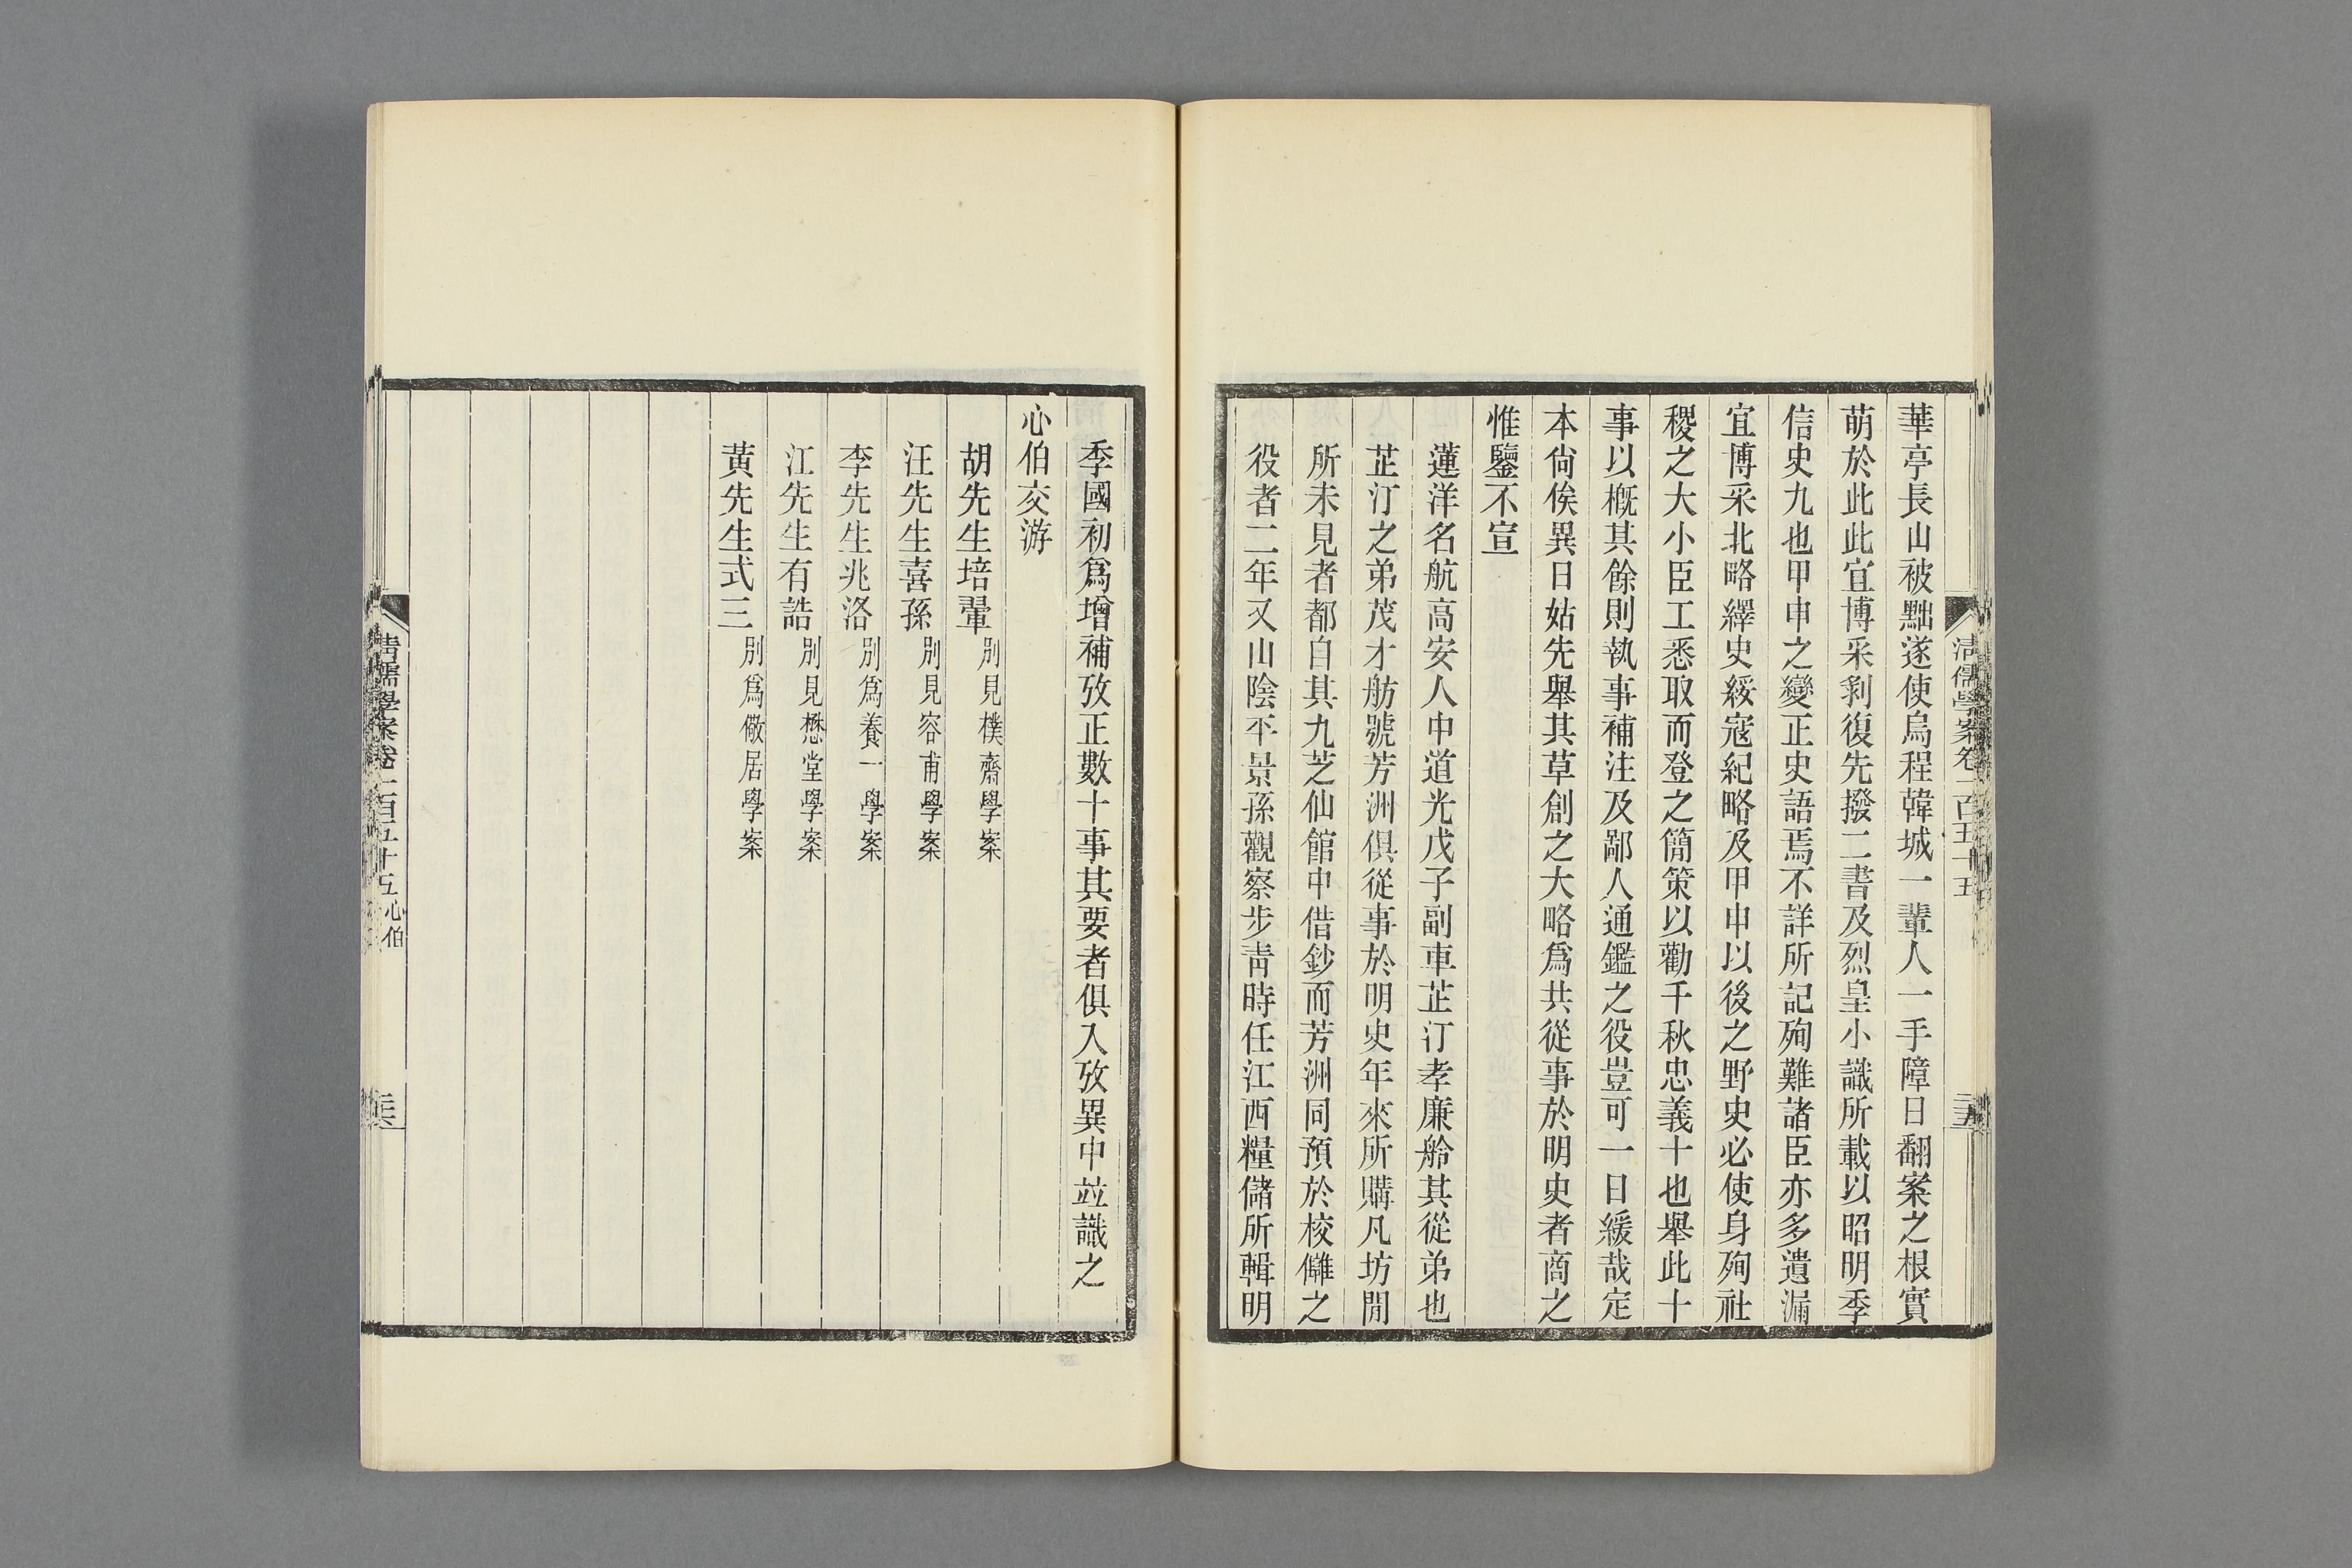 華亭長山被黜遂使烏程韓城一輩人一手障日翻案之根實
萌於此此宜博采剝復先撥二書及烈皇小識所載以昭明季
信史九也甲申之變正史語焉不詳所記殉難諸臣亦多遺漏
宜博采北略繹史綏寇紀略及甲申以後之野史必使身殉社
稷之大小臣工悉取而登之簡策以勸千秋忠義十也舉此十
事以概其餘則執事補注及鄙人通鑑之役豈可一日緩哉定
本尙俟異日姑先舉其草創之大略爲共從事於明史者商之
惟鑒不宣
蓮洋名航高安人中道光戊子副車芷汀孝廉舲其從弟也
芷汀之弟茂才舫號芳洲俱從事於明史年來所購凡坊閒
所未見者都自其九芝仙館中借鈔而芳洲同預於校讎之
役者二年又山陰平景孫觀察步青時任江西糧儲所輯明
清儒學案卷一百五十五
季國初爲增補攷正數十事其要者俱入攷異中竝識之
心伯交游
胡先生培翬別見樸齋學案
汪先生喜孫別見容甫學案
李先生兆洛別爲養一學案
江先生有誥別見懋堂學案
黃先生式三別爲儆居學案
清儒學案卷一百五十五 心伯